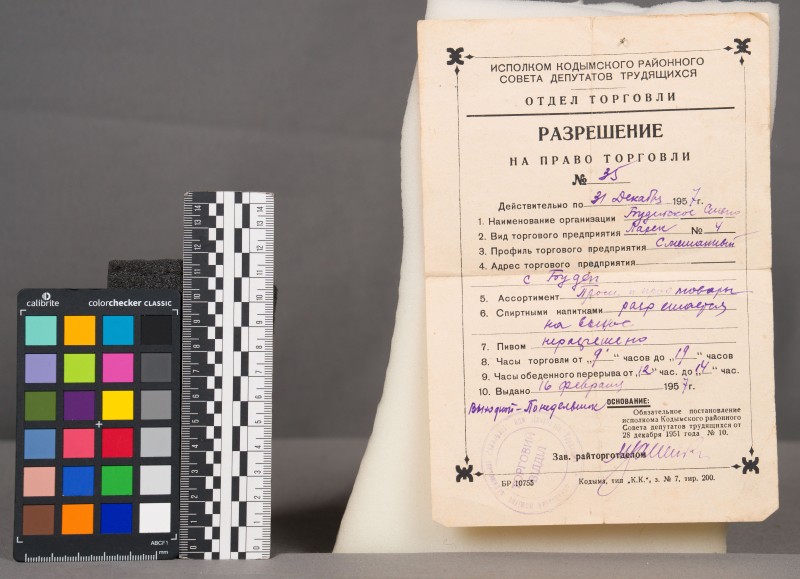 calibrite
colorchecker CLASSIC
ABCF1
mm
ИСПОЛКОМ КОДЫМСКОГО РАЙОННОГО
СОВЕТА ДЕПУТАТОВ ТРУДЯЩИХСЯ
ОТДЕЛ ТОРГОВЛИ
РАЗРЕШЕНИЕ
НА ПРАВО ТОРГОВЛИ
№ 35
Действительно по 31 Декабря 1957г.
1. Наименование организации
2. Вид торгового предприятия Ларек № 4
3. Профиль торгового предприятия Смешанный
4. Адрес торгового предприятия
с Буды
5. Ассортимент товары
6. Спиртными напитками разрешается
на вынос
7. Пивом неразрешено
8. Часы торговли от „9" часов до „19" часов
9. Часы обеденного перерыва от „12" час. до „14" час.
10. Выдано 16 февраля 1957г.
Выходной-Понедельник
ОСНОВАНИЕ:
Обязательное постановление
исполкома Кодымского районного
Совета депутатов трудящихся от
28 декабря 1951 года № 10.
Зав. райторготделом
БР 10755
Кодыма, тип „К.К.", з. № 7, тир. 200.